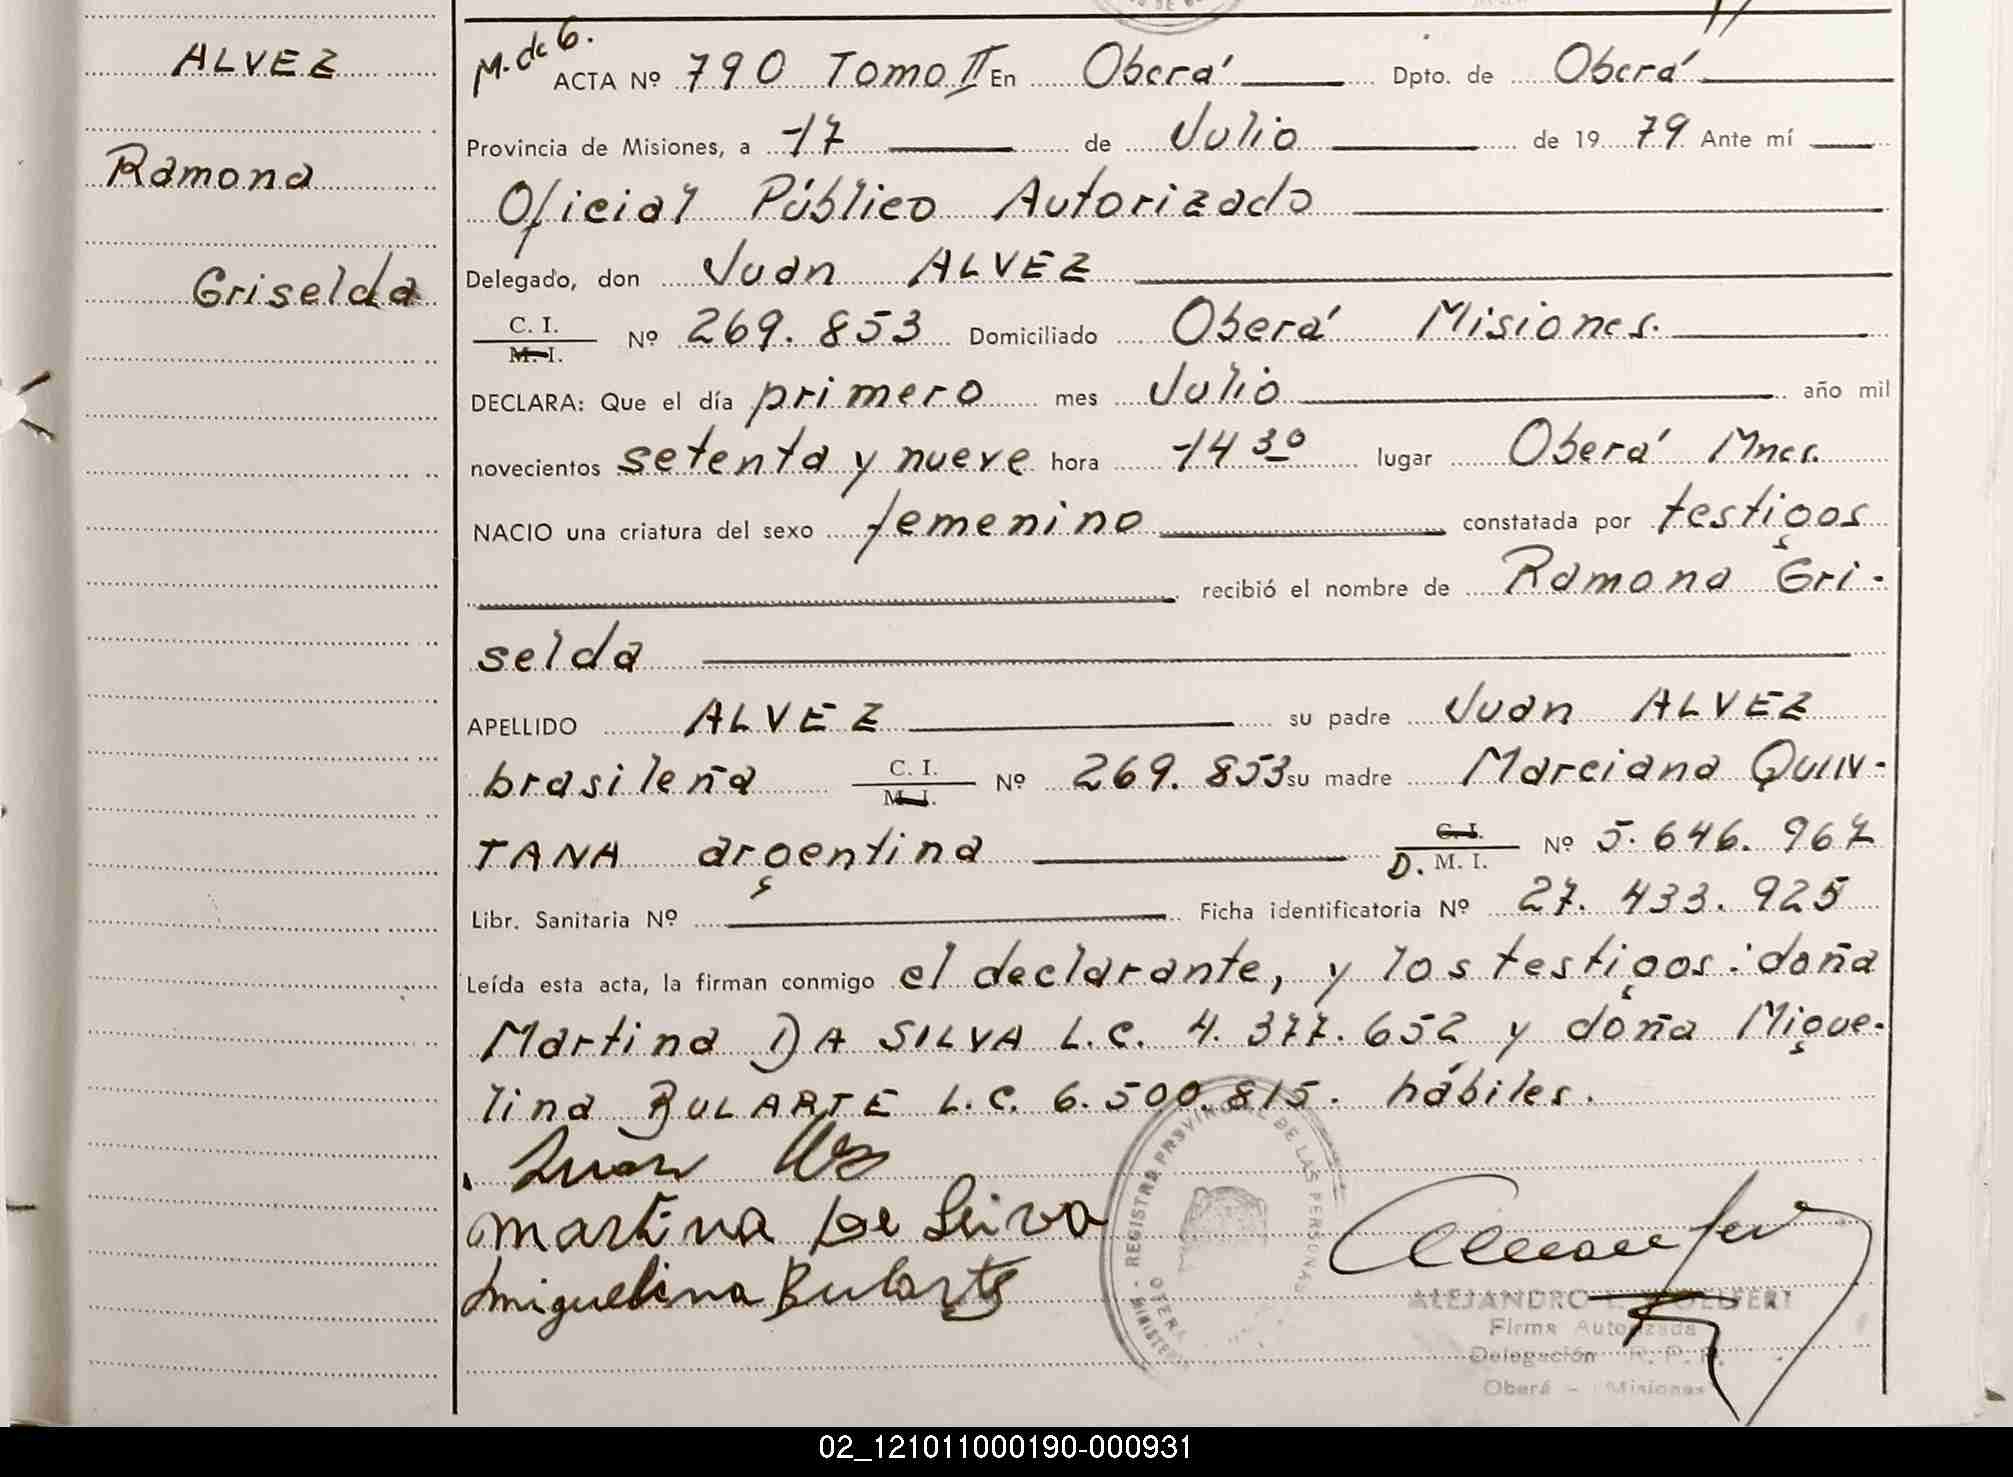 ALVEZ
Ramona
Griselda
M. de 6.
ACTA Nº 790 Tomo II En Oberá Dpto. de Oberá
Provincia de Misiones, a 17 de Julio de 19 79 Ante mí
Oficial Público Autorizado
Delegado, don Juan ALVEZ
C. I.
M. I. Nº 269.853 Domiciliado Oberá Misiones.
DECLARA: Que el día primero mes Julio año mil
novecientos setenta y nueve hora 14 30 lugar Oberá Mnes.
NACIO una criatura del sexo femenino constatada por testigos
recibió el nombre de Ramona Gri-
selda
APELLIDO ALVEZ su padre Juan ALVEZ
brasileña C. I.
M. I. Nº 269.853 su madre Marciana QUIN-
TANA argentina C. I.
D. M. I. Nº 5.646.967
Libr. Sanitaria Nº Ficha identificatoria Nº 27.433.925
Leída esta acta, la firman conmigo el declarante, y los testigos: doña
Martina DA SILVA L.C. 4.377.652 y doña Migue-
lina BULARTE L.C. 6.500.815. hábiles.
Juan
martina De Seiva
miguelina Bularte
REGISTRO PROVINCIAL DE LAS PERSONAS
MINISTERIO
ALEJANDRO
Firma Autorizada
Delegación R. P. P.
Oberá - Misiones
02_121011000190-000931